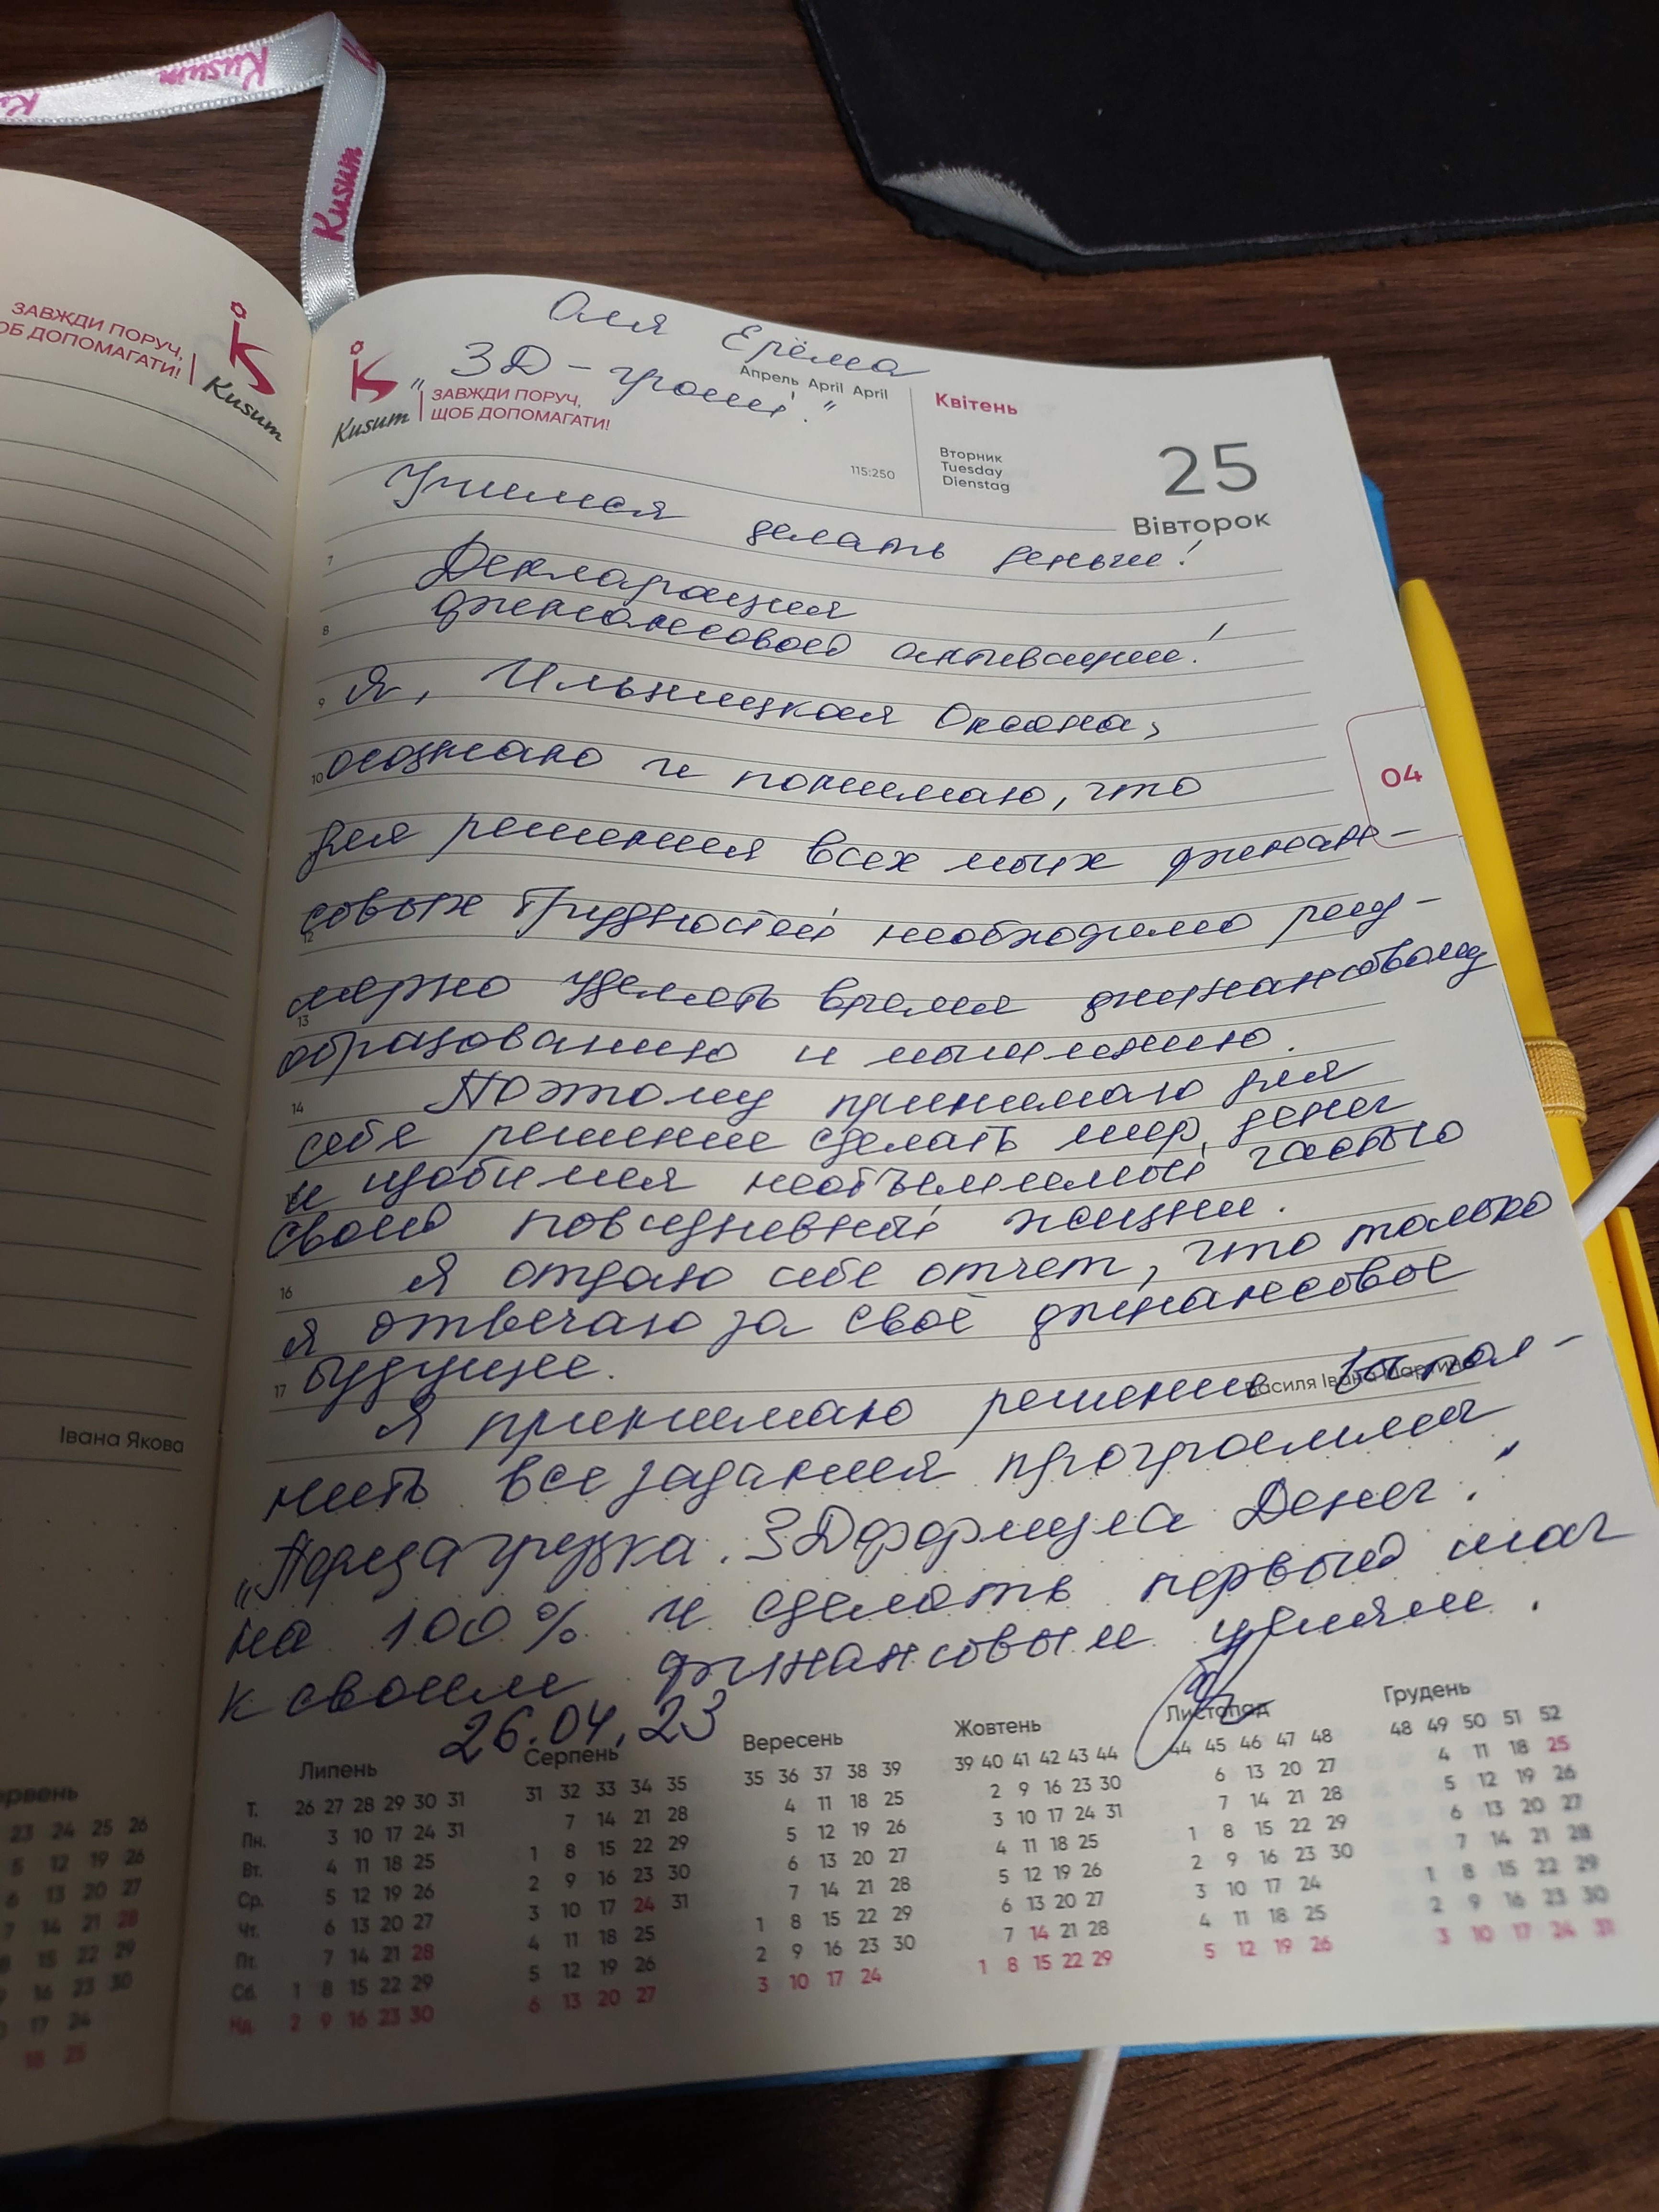 Kusum
Kusum
Kusum
ЗАВЖДИ ПОРУЧ,
ЩОБ ДОПОМАГАТИ!
Kusum
Івана Якова
Оля Ерёма
"3Д - гроші."
Kusum
ЗАВЖДИ ПОРУЧ,
ЩОБ ДОПОМАГАТИ!
Апрель April April
Квітень
115:250
Вторник
Tuesday
Dienstag
25
Вівторок
04
Учимся делать деньги!
7
Декларация
8 финансовой активации!
9 Я, Ильницкая Оксана,
10 осознаю и понимаю, что
для решения всех моих финан-
12 совых трудностей необходимо регу-
лярно уделять время финансовому
13
образованию и мышлению.
14 Поэтому принимаю для
себя решение сделать мир денег
и изобилия необъемлимой частью
своей повседневной жизни.
16 Я отдаю себе отчет, что только
я отвечаю за своё финансовое
17 будущее.
Василя Івана Мартина
Я принимаю решение выпол-
нить все задания программы
„Перезагрузка. 3Д формула Денег."
на 100% и сделать первый шаг
к своим финансовым целям.
26.04.23
Липень Серпень Вересень Жовтень Листопад Грудень
Т. 26 27 28 29 30 31 31 32 33 34 35 35 36 37 38 39 39 40 41 42 43 44 44 45 46 47 48 48 49 50 51 52
Пн. 3 10 17 24 31 7 14 21 28 4 11 18 25 2 9 16 23 30 6 13 20 27 4 11 18 25
Вт. 4 11 18 25 1 8 15 22 29 5 12 19 26 3 10 17 24 31 7 14 21 28 5 12 19 26
Ср. 5 12 19 26 2 9 16 23 30 6 13 20 27 4 11 18 25 1 8 15 22 29 6 13 20 27
Чт. 6 13 20 27 3 10 17 24 31 7 14 21 28 5 12 19 26 2 9 16 23 30 7 14 21 28
Пт. 7 14 21 28 4 11 18 25 1 8 15 22 29 6 13 20 27 3 10 17 24 1 8 15 22 29
Сб. 1 8 15 22 29 5 12 19 26 2 9 16 23 30 7 14 21 28 4 11 18 25 2 9 16 23 30
Нд. 2 9 16 23 30 6 13 20 27 3 10 17 24 1 8 15 22 29 5 12 19 26 3 10 17 24 31